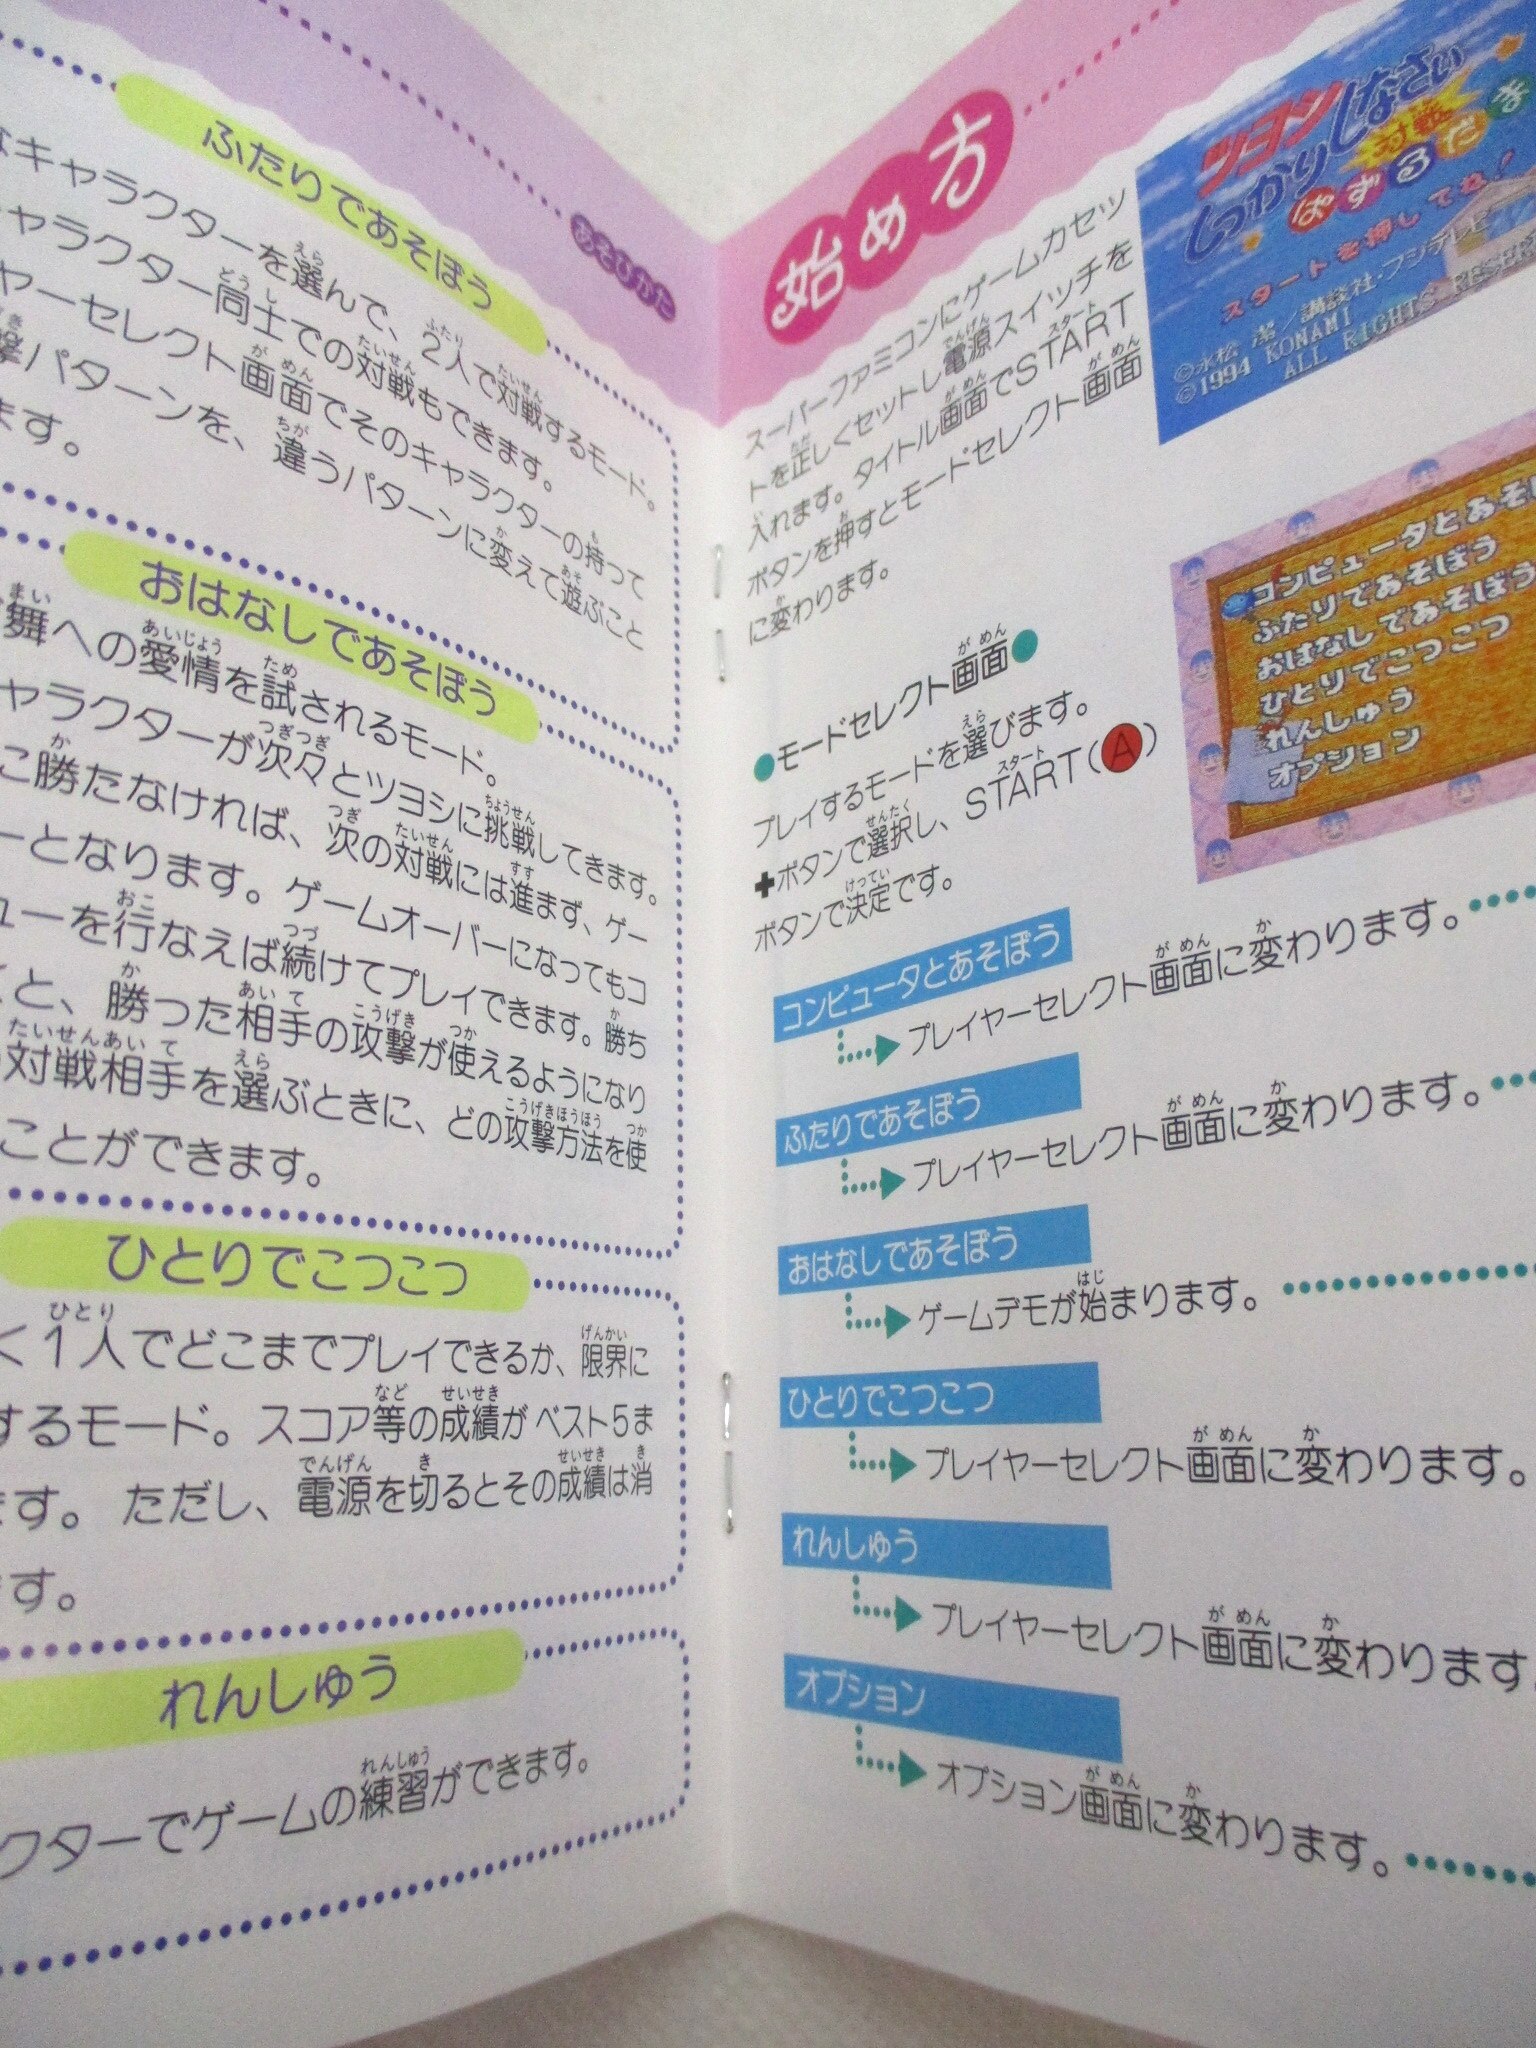 あそびかた
ふたりであそぼう
なキャラクターを選んで、2人で対戦するモード。
キャラクター同士での対戦もできます。
ヤーセレクト画面でそのキャラクターの持って
撃パターンを、違うパターンに変えて遊ぶこと
ます。
おはなしであそぼう
舞への愛情を試されるモード。
ャラクターが次々とツヨシに挑戦してきます。
に勝たなければ、次の対戦には進まず、ゲー
ーとなります。ゲームオーバーになってもコ
ューを行なえば続けてプレイできます。勝ち
と、勝った相手の攻撃が使えるようになり
対戦相手を選ぶときに、どの攻撃方法を使
ことができます。
ひとりでこつこつ
く1人でどこまでプレイできるか、限界に
するモード。スコア等の成績がベスト5ま
ます。ただし、電源を切るとその成績は消
ます。
れんしゅう
クターでゲームの練習ができます。
始め方
スーパーファミコンにゲームカセッ
トを正しくセットし電源スイッチを
入れます。タイトル画面でSTART
ボタンを押すとモードセレクト画面
に変わります。
ツヨシ
しっかりしなさい
対戦
ぱずるだま
スタートを押してね!
©永松 潔/講談社・フジテレビ
©1994 KONAMI
ALL RIGHTS RESER
●モードセレクト画面●
プレイするモードを選びます。
✚ボタンで選択し、START(A)
ボタンで決定です。
コンピュータとあそ
ふたりであそぼう
おはなしであそぼう
ひとりでこつこつ
れんしゅう
オプション
コンピュータとあそぼう
プレイヤーセレクト画面に変わります。
ふたりであそぼう
プレイヤーセレクト画面に変わります。
おはなしであそぼう
ゲームデモが始まります。
ひとりでこつこつ
プレイヤーセレクト画面に変わります。
れんしゅう
プレイヤーセレクト画面に変わります
オプション
オプション画面に変わります。